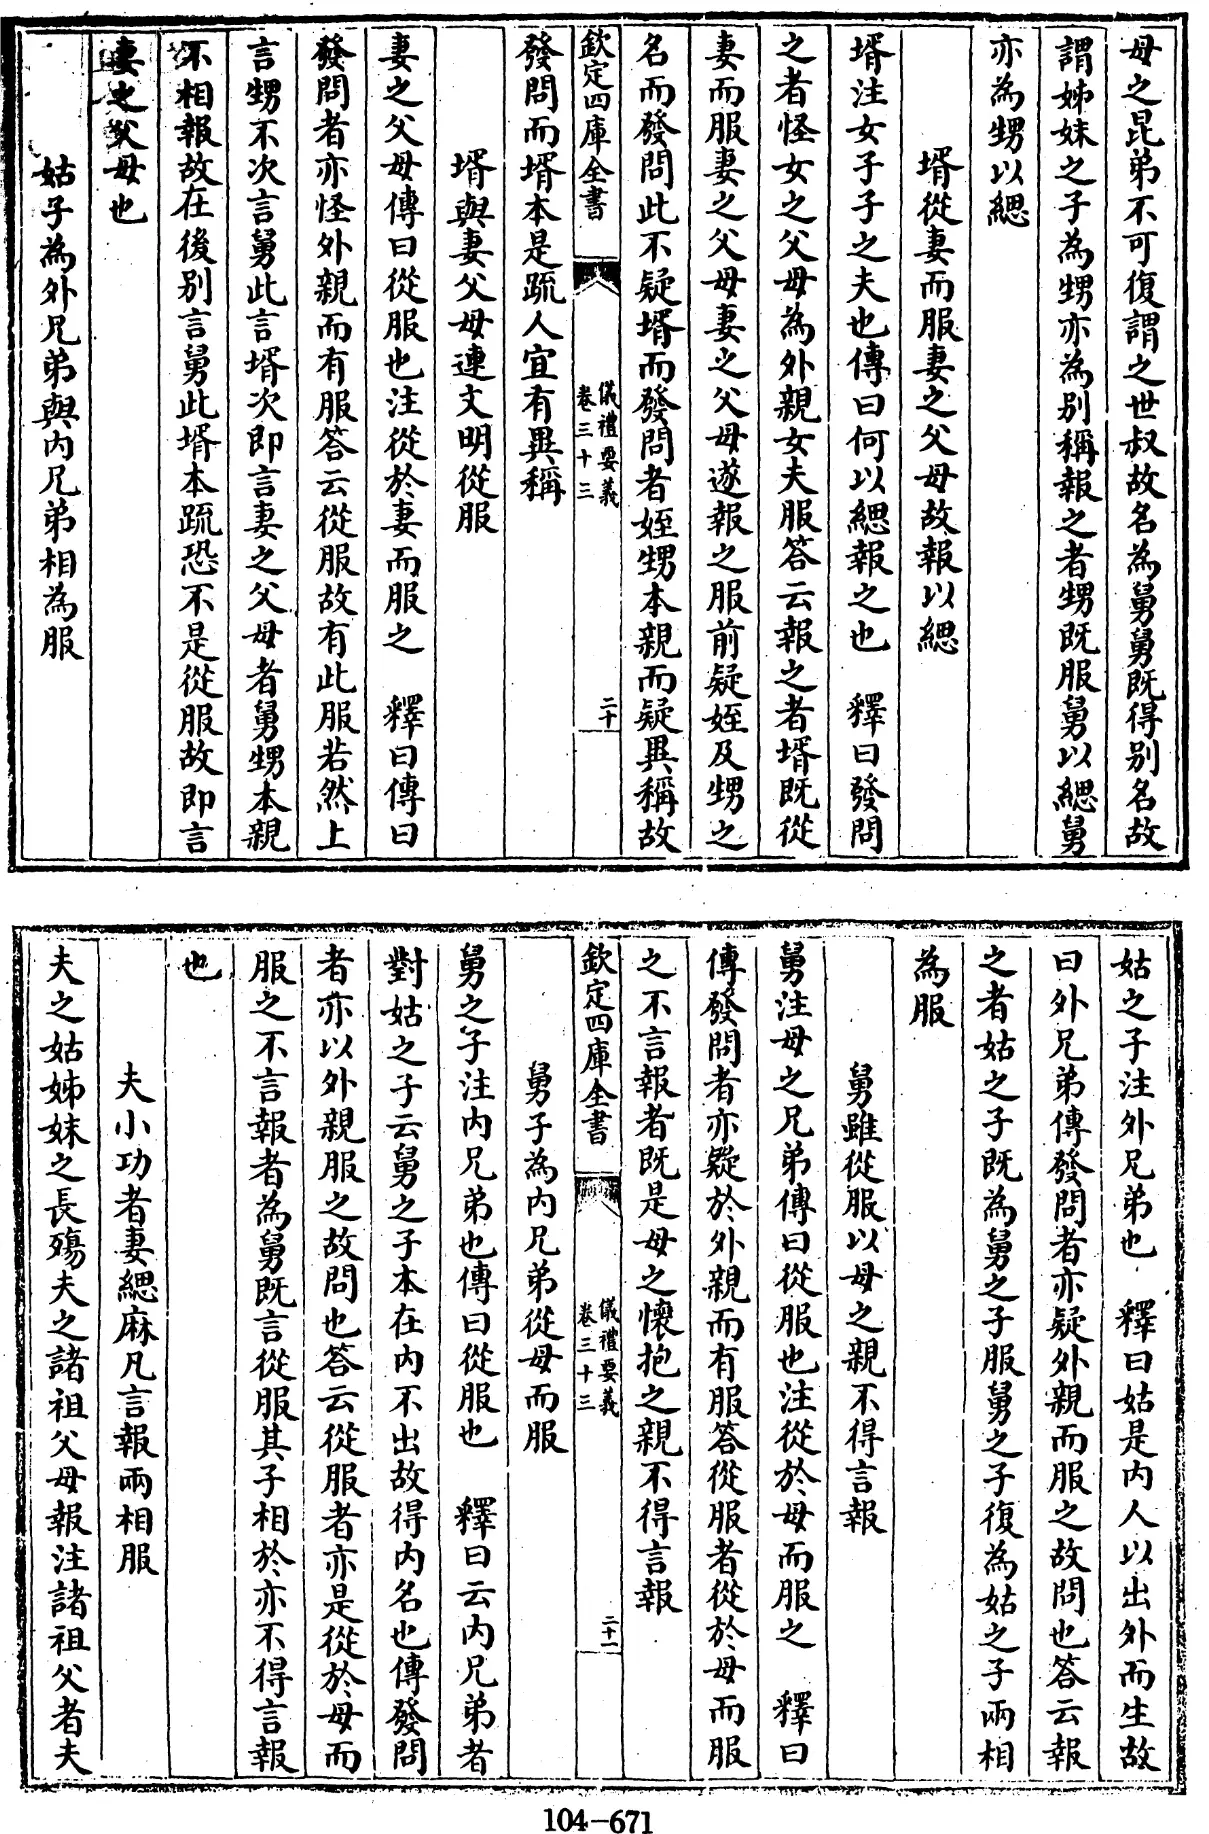 母之昆弟不可復謂之世叔故名為舅舅既得别名故
謂姊妹之子為甥亦為别稱報之者甥既服舅以緦舅
亦為甥以緦
壻從妻而服妻之父母故報以緦
壻注女子子之夫也傳曰何以緦報之也　釋曰發問
之者怪女之父母為外親女夫服答云報之者壻既從
妻而服妻之父母妻之父母遂報之服前疑姪及甥之
名而發問此不疑壻而發問者姪甥本親而疑異稱故
欽定四庫全書
儀禮要義
卷三十三
二十
發問而壻本是疏人宜有異稱
壻與妻父母連文明從服
妻之父母傳曰從服也注從於妻而服之　釋曰傳曰
發問者亦怪外親而有服答云從服故有此服若然上
言甥不次言舅此言壻次即言妻之父母者舅甥本親
不相報故在後别言舅此壻本疏恐不是從服故即言
妻之父母也
姑子為外兄弟與内兄弟相為服
姑之子注外兄弟也　釋曰姑是内人以出外而生故
曰外兄弟傳發問者亦疑外親而服之故問也答云報
之者姑之子既為舅之子服舅之子復為姑之子兩相
為服
舅雖從服以母之親不得言報
舅注母之兄弟傳曰從服也注從於母而服之　釋曰
傳發問者亦疑於外親而有服答從服者從於母而服
之不言報者既是母之懷抱之親不得言報
欽定四庫全書
儀禮要義
卷三十三
二十一
舅子為内兄弟從母而服
舅之子注内兄弟也傳曰從服也　釋曰云内兄弟者
對姑之子云舅之子本在内不出故得内名也傳發問
者亦以外親服之故問也答云從服者亦是從於母而
服之不言報者為舅既言從服其子相於亦不得言報
也
夫小功者妻緦麻凡言報兩相服
夫之姑姊妹之長殤夫之諸祖父母報注諸祖父者夫
104-671